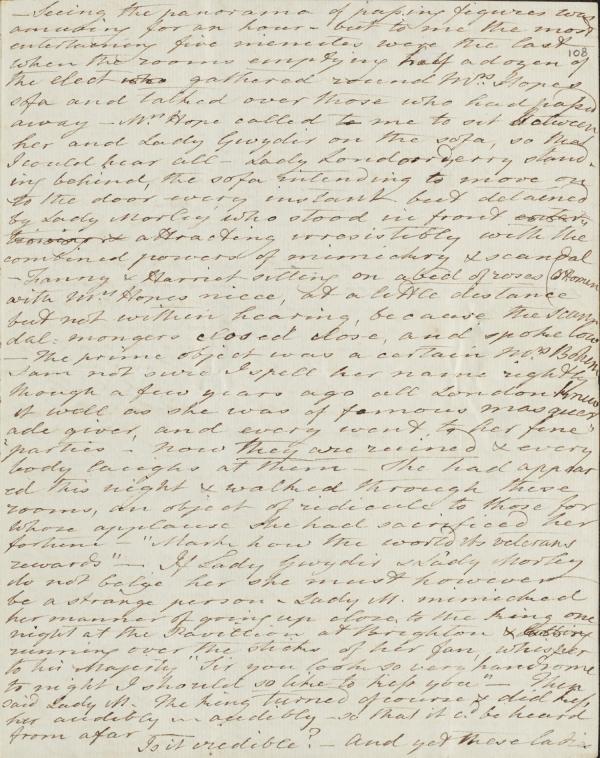 - Seeing the panorama of passing figures was
amusing for an hour - but to me the most
entertaining five menutes were the last
108
when the rooms emptying half a dozen of
the elect who gathered round Mrs Hopes
sofa and talked over those who had passd
away - Mrs Hope called to me to sit between
her and Lady Gwydir on the sofa, so that
I could hear all - Lady Londonderry stand-
ing behind, the sofa intending to move on
to the door every instant but detained
by Lady Morley who stood in front
attracting irresistibly with the
combined powers of mimickry & scandal
- Fanny & Harriet sitting on a bed of roses
with Mrs Hopes niece, at a little distance
but not within hearing, because the scan
dal-mongers closed close, and spoke low
- The prime object was a certain Mrs
I am not sure I spell her name rightly
though a few years ago all London knew
it well as she was of famous masquer
ade giver, and every went to her fine"
"parties - now they are ruined & every
body laughs at them - She had appear
ed this night & walked through these
rooms, an object of ridicule to those for
whose applause she had sacrificed her
fortune - "Mark how the world its veterans
rewards" - If Lady Gwydir & Lady Morley
do not belye her she must however
be a strange person - Lady M. mimicked
her manner of going up close to the King one
night at the Pavillion at Brighton &
running over the sticks of her fan, whisper
to his Majesty "Sir you look so very handsome
to night I should so like to kiss you" - Then
said Lady M. The King turned of course & did kiss
her audibly - audibly - so that it cd. be heard
from afar
Is it credible? - And yet these ladie